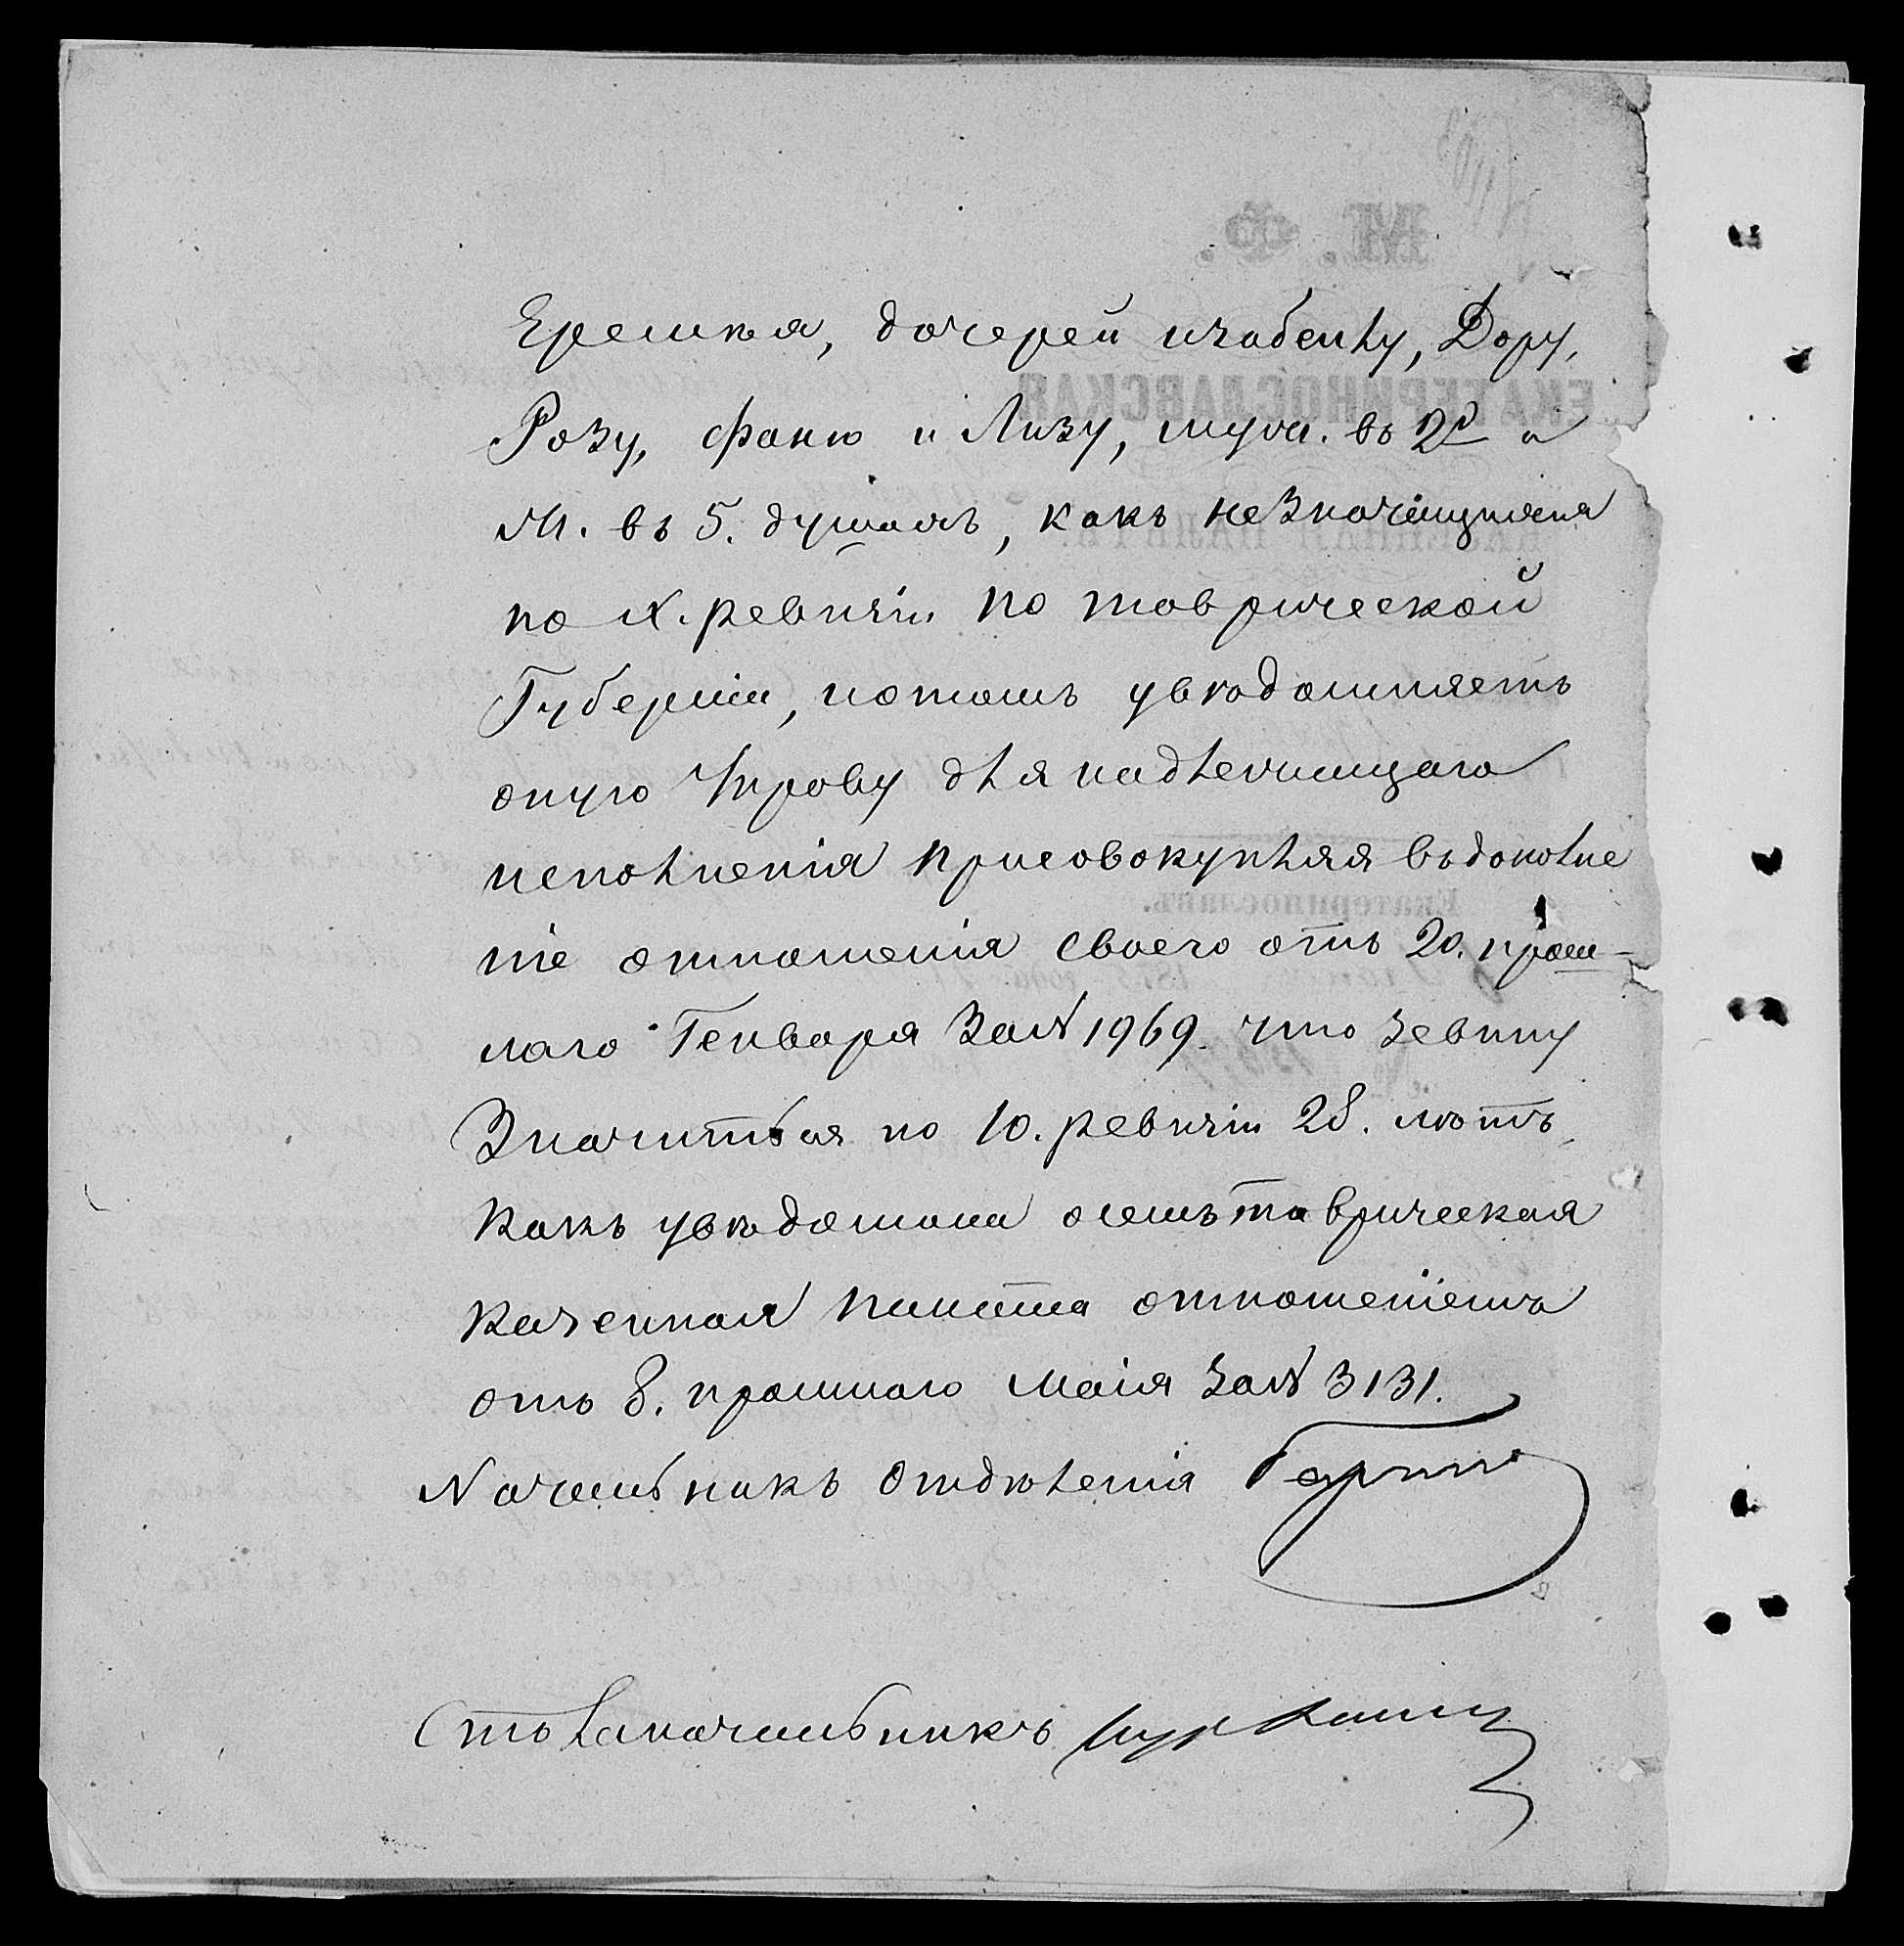 Еремѣя, дочерей изабеллу, Дору,
Розу, фаню и Лизу, муж. въ 2х и
ж. въ 5. душахъ, какъ незначащихся
по X. ревизіи по таврической
Губерніи, о томъ увѣдомляетъ
оную Управу для надлежащаго
исполненія присовокупляя въ дополне
ніе отношенія своего отъ 20. прош-
лаго Генваря за № 1969. что Левину
Значиться по 10. ревизіи 28. лѣтъ,
какъ увѣдомила о семъ таврическая
казенная палата отношеніемъ
отъ 8. прошлаго Маія за № 3131.
Начальникъ Отдѣленія
Столоначальникъ
М. Ф.
ЕКАТЕРИНОСЛАВСКАЯ
КАЗЕННАЯ ПАЛАТА.
Екатеринославъ.